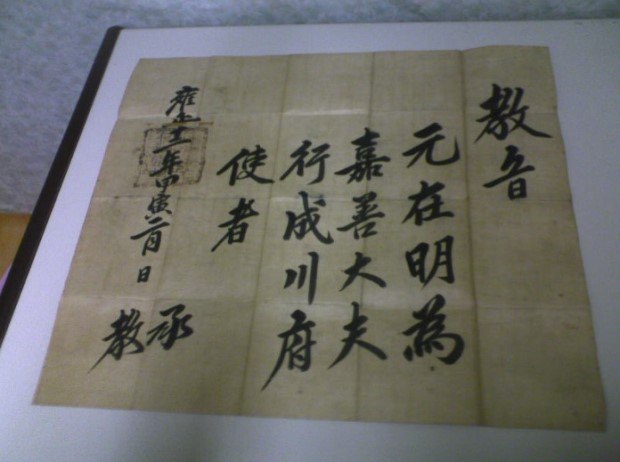 教旨
元在明為
嘉善大夫
行成川府
使者
雍正十二年甲寅二月 日
承
教